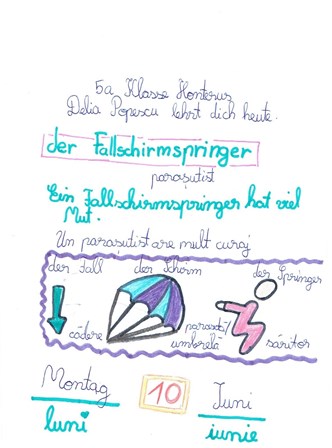 5a Klasse Honterus
Delia Popescu lehrt dich heute.
der Fallschirmspringer
parașutist
Ein Fallschirmspringer hat viel
Mut.
Un parașutist are mult curaj
der Fall der Schirm der Springer
cădere parasută/ umbrelă săritor
Montag 10 Juni
luni iunie